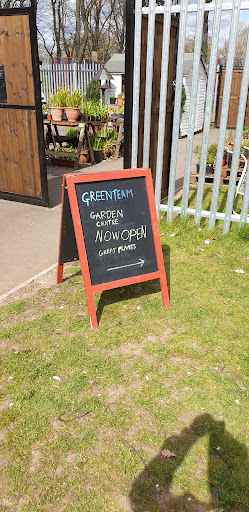 GREENTEAM
GARDEN
CENTRE
NOW OPEN
GREAT PLANTS